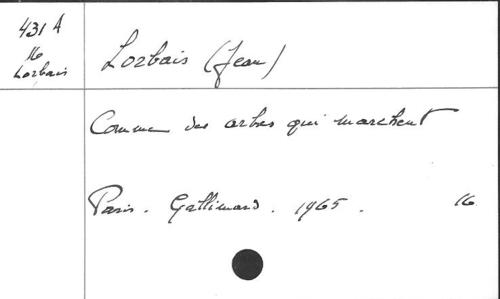 431 A
16
Lorbais
Lorbais (Jean)
Comme des arbres qui marchent
Paris. Gallimard. 1965. 16